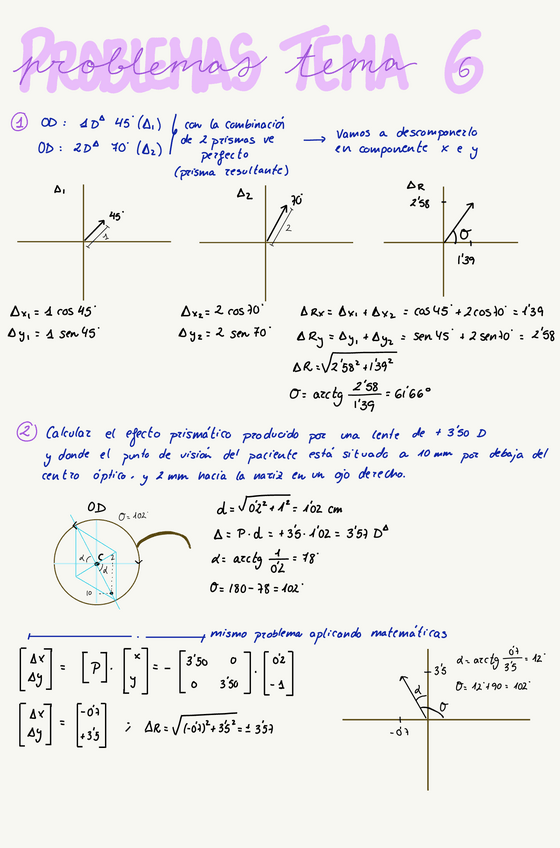 PROBLEMAS TEMA 6
problemas tema 6
1 OD: 1D^Δ 45° (Δ₁)
OD: 2D^Δ 70° (Δ₂)
con la combinación
de 2 prismas ve
perfecto
(prisma resultante)
→ Vamos a descomponerlo
en componente x e y
Δ₁
45°
1
Δ₂
70°
2
ΔR
2'58
σ
1'39
Δx₁ = 1 cos 45°
Δy₁ = 1 sen 45°
Δx₂ = 2 cos 70°
Δy₂ = 2 sen 70°
ΔRx = Δx₁ + Δx₂ = cos 45° + 2 cos 70° = 1'39
ΔRy = Δy₁ + Δy₂ = sen 45° + 2 sen 70° = 2'58
ΔR = √2'58² + 1'39²
σ = arctg 2'58/1'39 = 61'66°
2 Calcular el efecto prismático producido por una lente de + 3'50 D
y donde el punto de visión del paciente está situado a 10 mm por debajo del
centro óptico. y 2 mm hacia la nariz en un ojo derecho.
OD
σ = 102°
α
C
2
α
10
d = √0'2² + 1² = 1'02 cm
Δ = P · d = +3'5 · 1'02 = 3'57 D^Δ
α = arctg 1/0'2 = 78°
σ = 180 - 78 = 102°
mismo problema aplicando matemáticas
[Δx Δy] = [P] · [x y] = - [3'50 0 0 3'50] · [0'2 -1]
[Δx Δy] = [-0'7 +3'5] ; ΔR = √(-0'7)² + 3'5² = ± 3'57
3'5
α
σ
-0'7
α = arctg 0'7/3'5 = 12°
σ = 12 + 90 = 102°